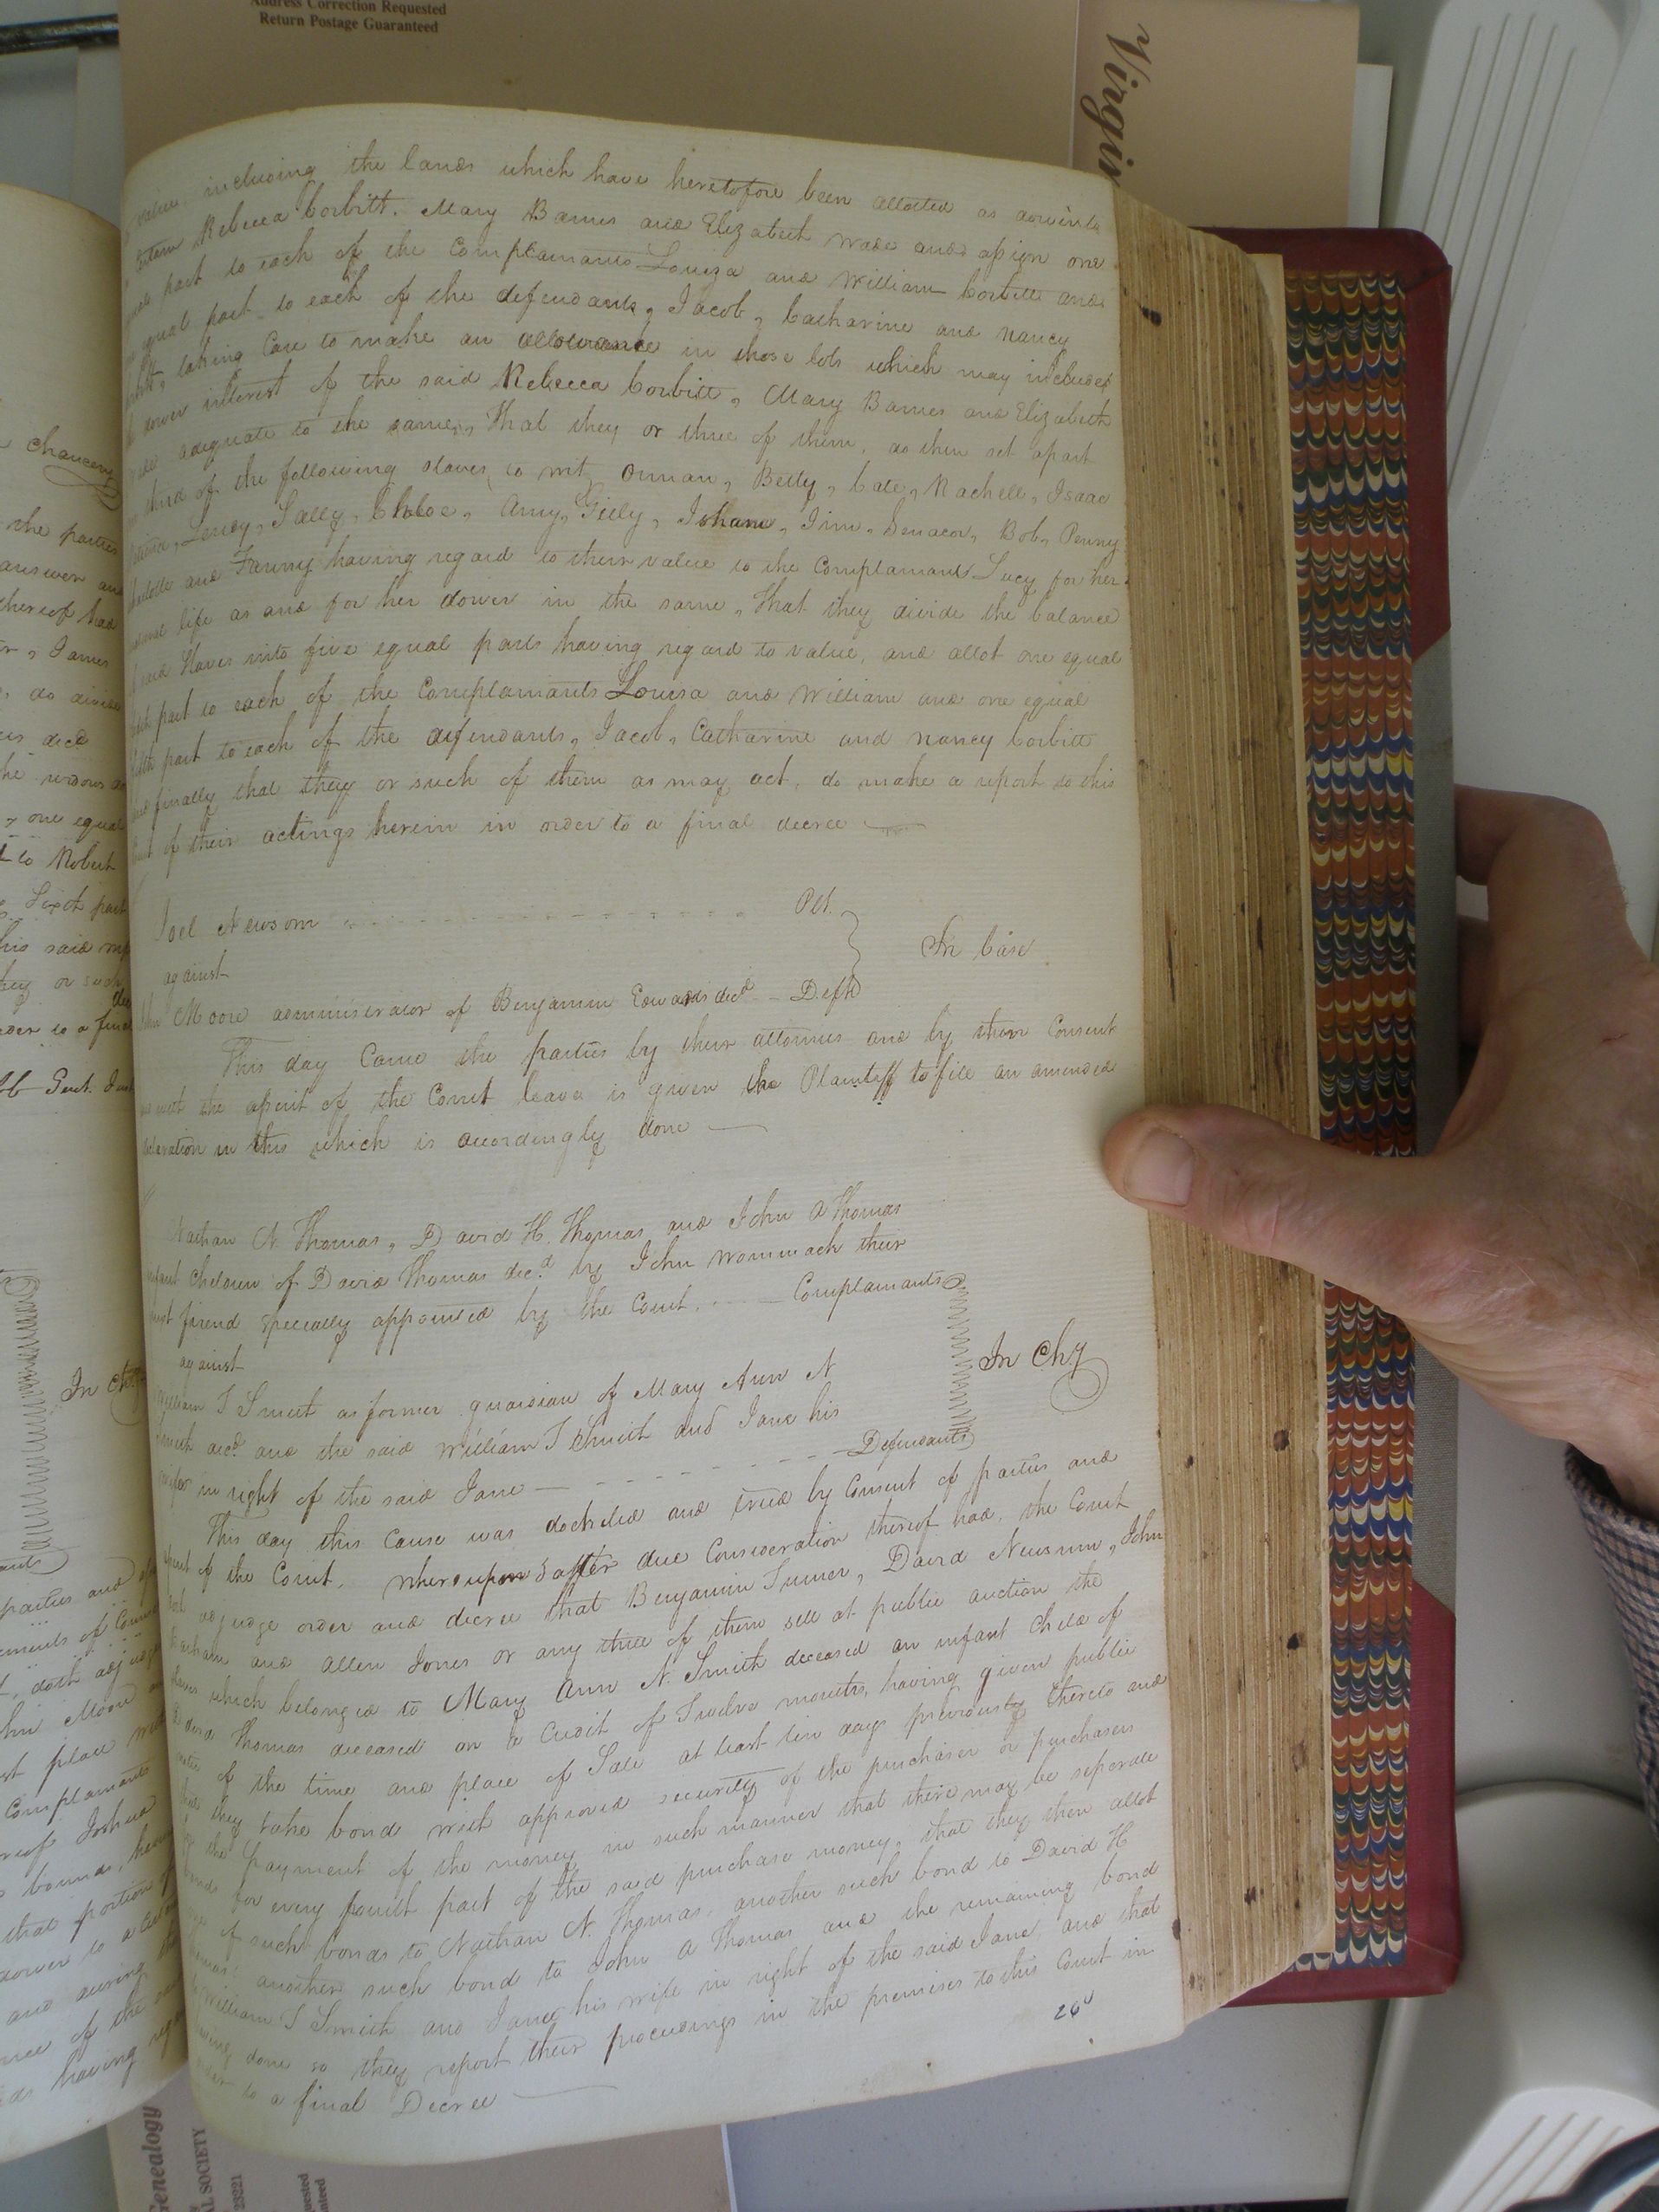 Address Correction Requested
Return Postage Guaranteed
Virgin
value, including the lands which have heretofore been allotted as dower to
Rebecca Corbitt, Mary Barnes and Elizabeth Wade and assign one
part to each of the Complainants Louiza and William Corbitt and
equal part to each of the defendants, Jacob, Catharine and Nancy
taking Care to make an allowance in those lots which may include
dower interest of the said Rebecca Corbitt, Mary Barnes and Elizabeth
adequate to the same, That they or three of them, do then set apart
third of the following slaves, to wit, Orman, Betty, Cate, Rachell, Isaac
Lucy, Sally, Chloe, Amy, Gilly, Isham, Jim, Senacor, Bob, Penny
and Fanny having regard to their value to the Complainant Lucy for her
life as and for her dower in the same, That they divide the balance
said slaves into five equal parts having regard to value, and allot one equal
part to each of the Complainants Louisa and William and one equal
fifth part to each of the defendants, Jacob, Catharine and Nancy Corbitt
and finally that they or such of them as may act, do make a report to this
Court of their actings herein in order to a final decree
Joel Newsom Plt.
against In Case
Moore administrator of Benjamin Edwards decd Deft
This day Came the parties by their attornies and by them Consent
and with the assent of the Court leave is given the Plaintiff to file an amended
declaration in this which is accordingly done
Nathan N. Thomas, David H. Thomas and John A Thomas
infant children of David Thomas decd. by John Wommack their
next friend specially appointed by the Court. Complainants
against In Chy
William T Smith as former guardian of Mary Ann N
Smith decd and the said William T Smith and Jane his
wife in right of the said Jane Defendants
This day this Cause was docketed and tried by Consent of parties and
assent of the Court. Whereupon & after due Consideration thereof had, the Court
doth adjudge order and decree that Benjamin Turner, David Newsum, John
and Allen Jones or any three of them sell at public auction the
slaves which belonged to Mary Ann N. Smith deceased an infant Child of
David Thomas deceased on a Credit of Twelve months, having given public
notice of the time and place of Sale at least ten days previously thereto and
that they take bond with approved security of the purchaser or purchasers
for the payment of the money in such manner that there may be separate
bonds for every fourth part of the said purchase money, that they then allot
one of such bonds to Nathan N. Thomas, another such bond to David H
Thomas, another such bond to John A Thomas and the remaining bond
to William T Smith and Jane his wife in right of the said Jane, and that
having done so they report their proceedings in the premises to this Court in
order to a final Decree
26
Chancery
the parties
answer and
thereof had
James
do divide
decd
the widows
one equal
to Robert
Sixth part
his said
they or such
order to a final
Gent. Just
In Ch
parties and
doth adjudge
Moore
place
Complainants
Joshua
bounds,
that portion of
dower to
and during
of the
having
Genealogy
SOCIETY
23221